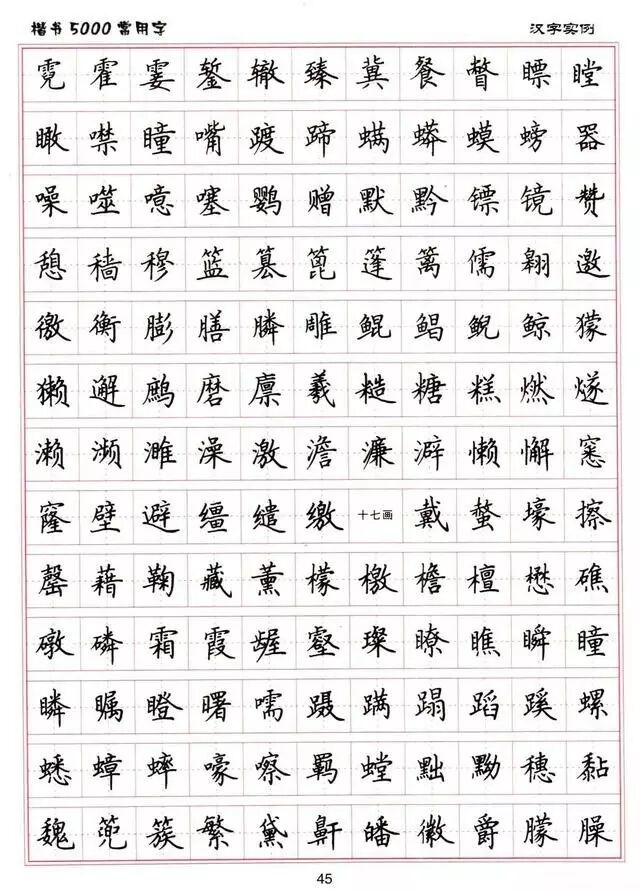 楷书5000常用字 汉字实例
霓霍霎錾辙臻冀餐瞥瞟瞠
瞰噤曈嘴踱蹄螨蟒蟆螃器
噪噬噫噻鹦赠默黔镖镜赞
憩穑穆篮篡篦篷篱儒翱邀
徼衡膨膳膦雕鲲鲳鲵鲸獴
獭邂鹧磨廪羲糙糖糕燃燧
濑濒濉澡激澹濂澼懒懈窸
窿壁避缰缱缴十七画戴螫壕擦
罄藉鞠藏薰檬檄檐檀懋礁
礅磷霜霞龌壑璨瞭瞧瞬瞳
瞵瞩瞪曙嚅蹑蹒蹋蹈蹊螺
蟋蟑蟀嚎嚓羁螳黜黝穗黏
魏篼簇繁黛鼾皤徽爵朦臊
45